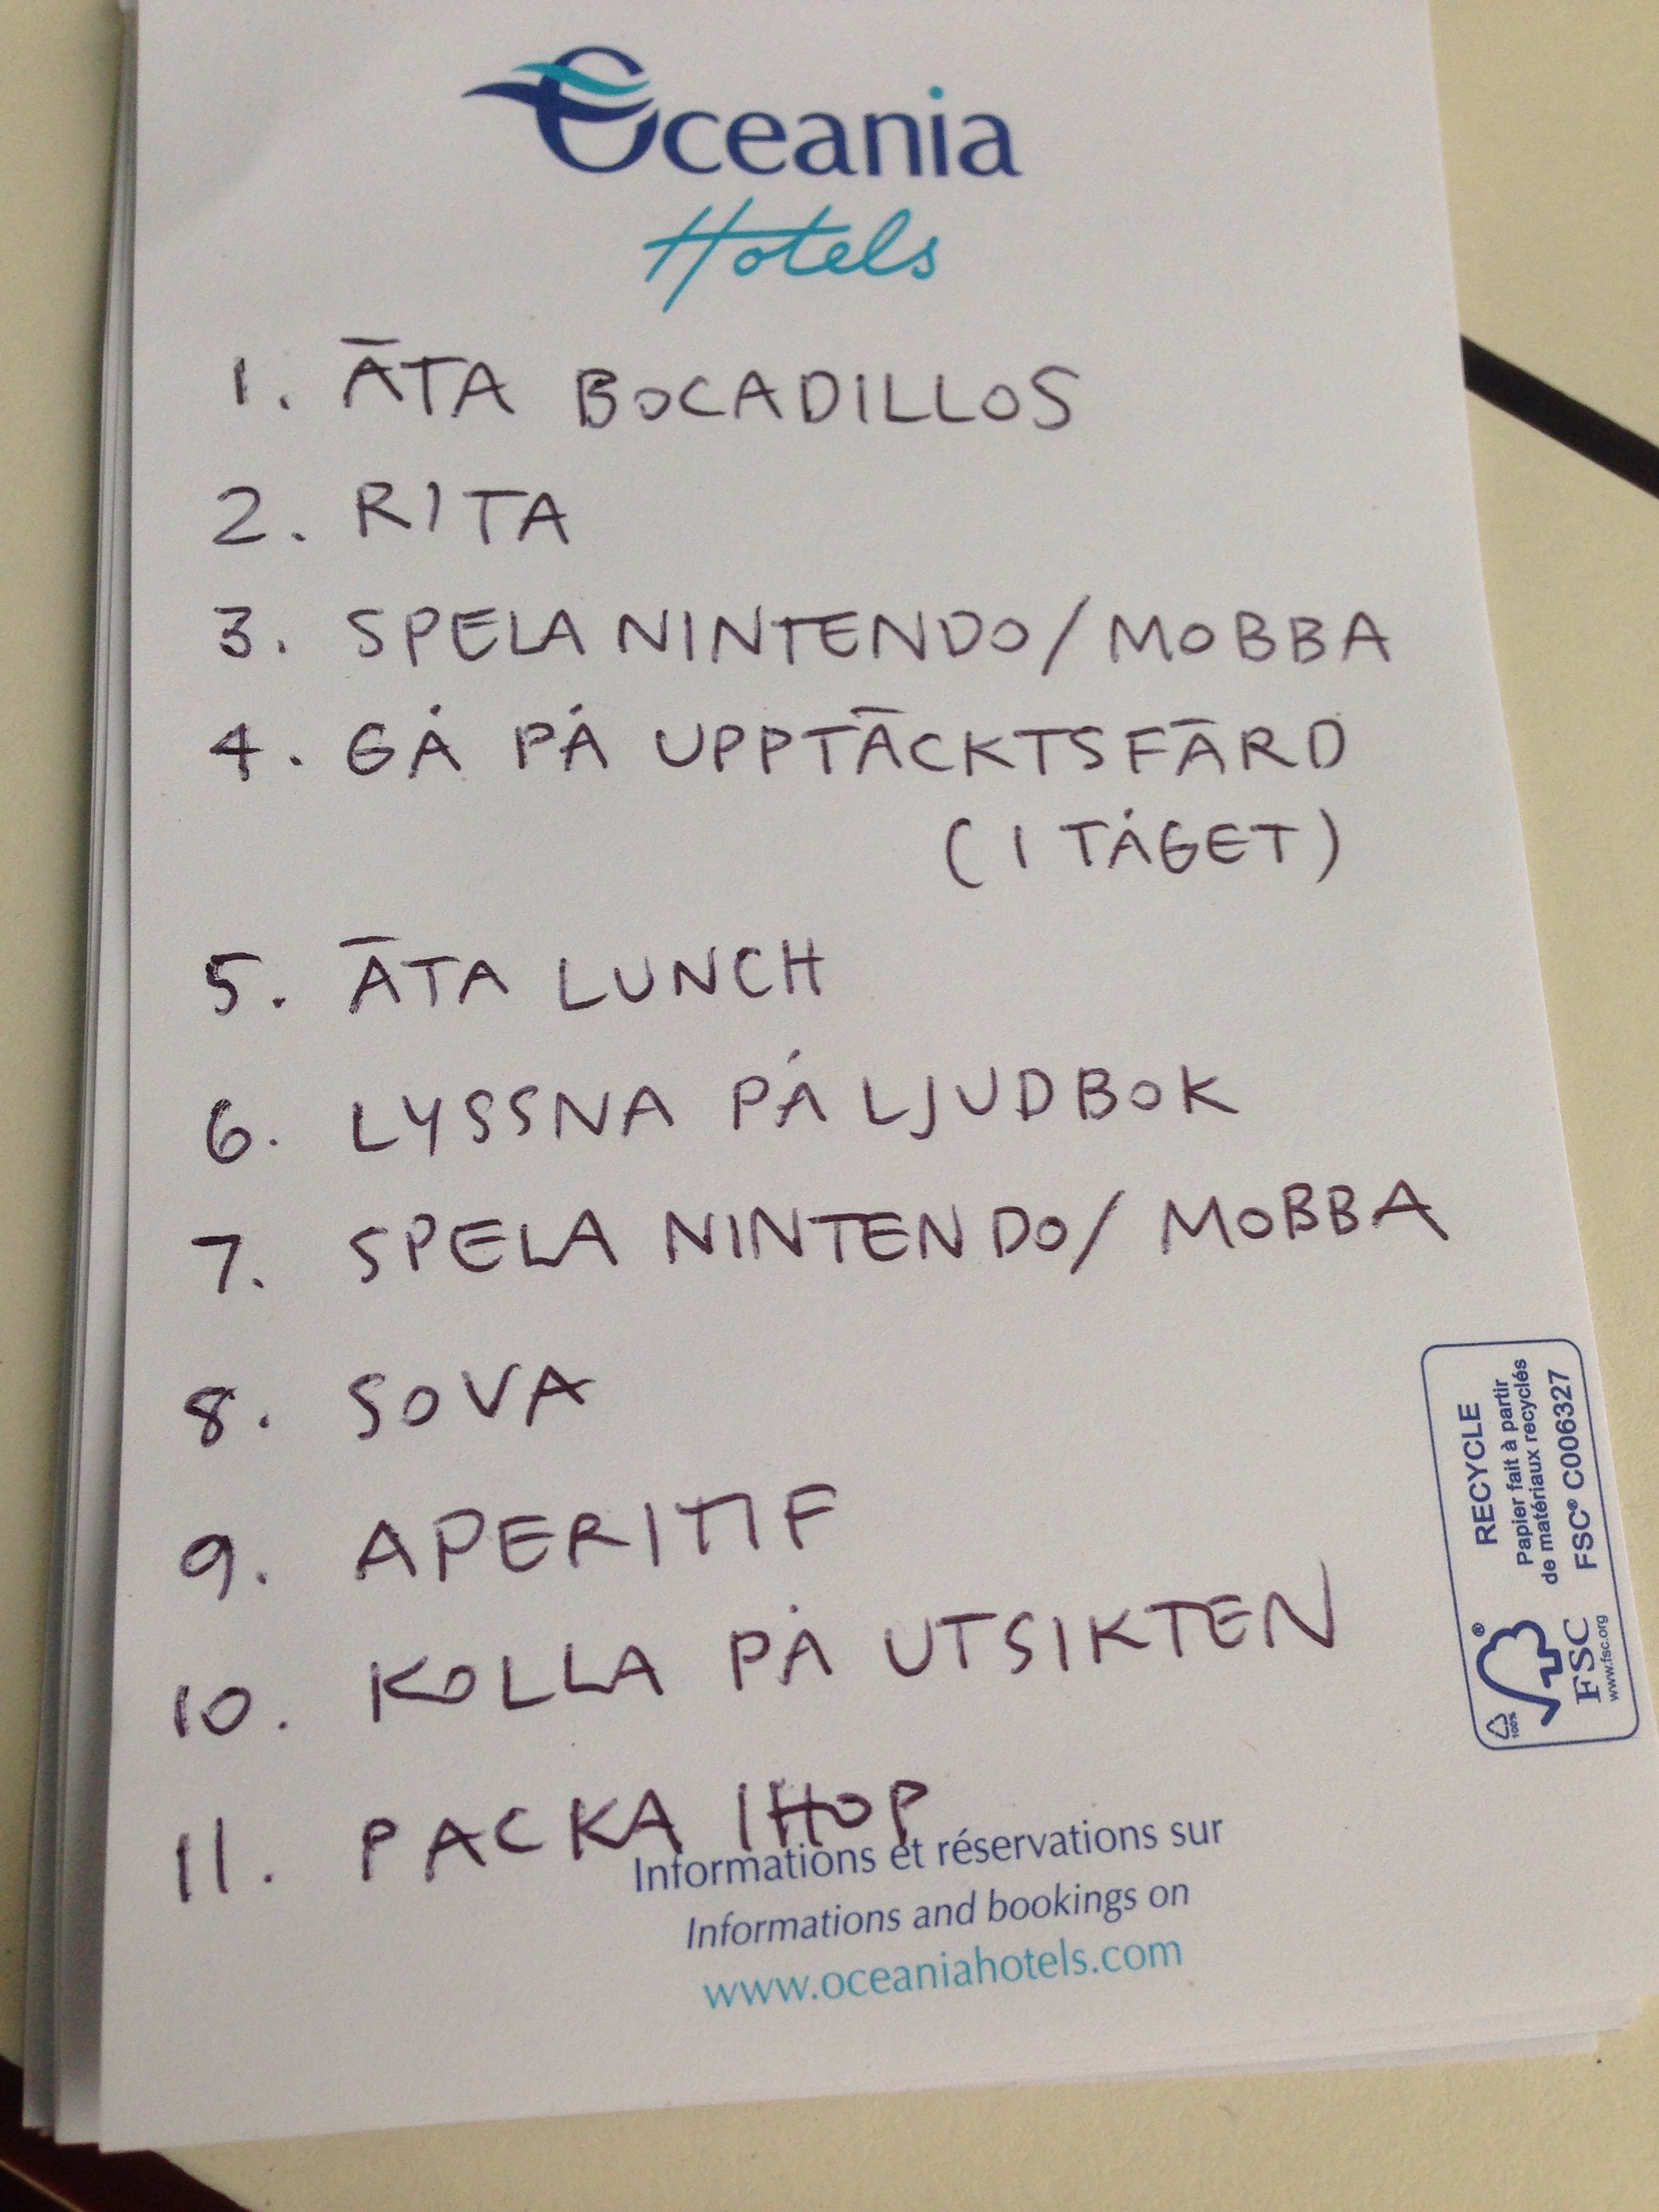 Oceania
Hotels
1. ÄTA BOCADILLOS
2. RITA
3. SPELA NINTENDO/MOBBA
4. GÅ PÅ UPPTÄCKTSFÄRD
(I TÅGET)
5. ÄTA LUNCH
6. LYSSNA PÅ LJUDBOK
7. SPELA NINTENDO/ MOBBA
8. SOVA
9. APERITIF
10. KOLLA PÅ UTSIKTEN
11. PACKA IHOP
Informations et réservations sur
Informations and bookings on
www.oceaniahotels.com
RECYCLE
Papier fait à partir
de matériaux recyclés
FSC® C006327
100%
®
FSC
www.fsc.org